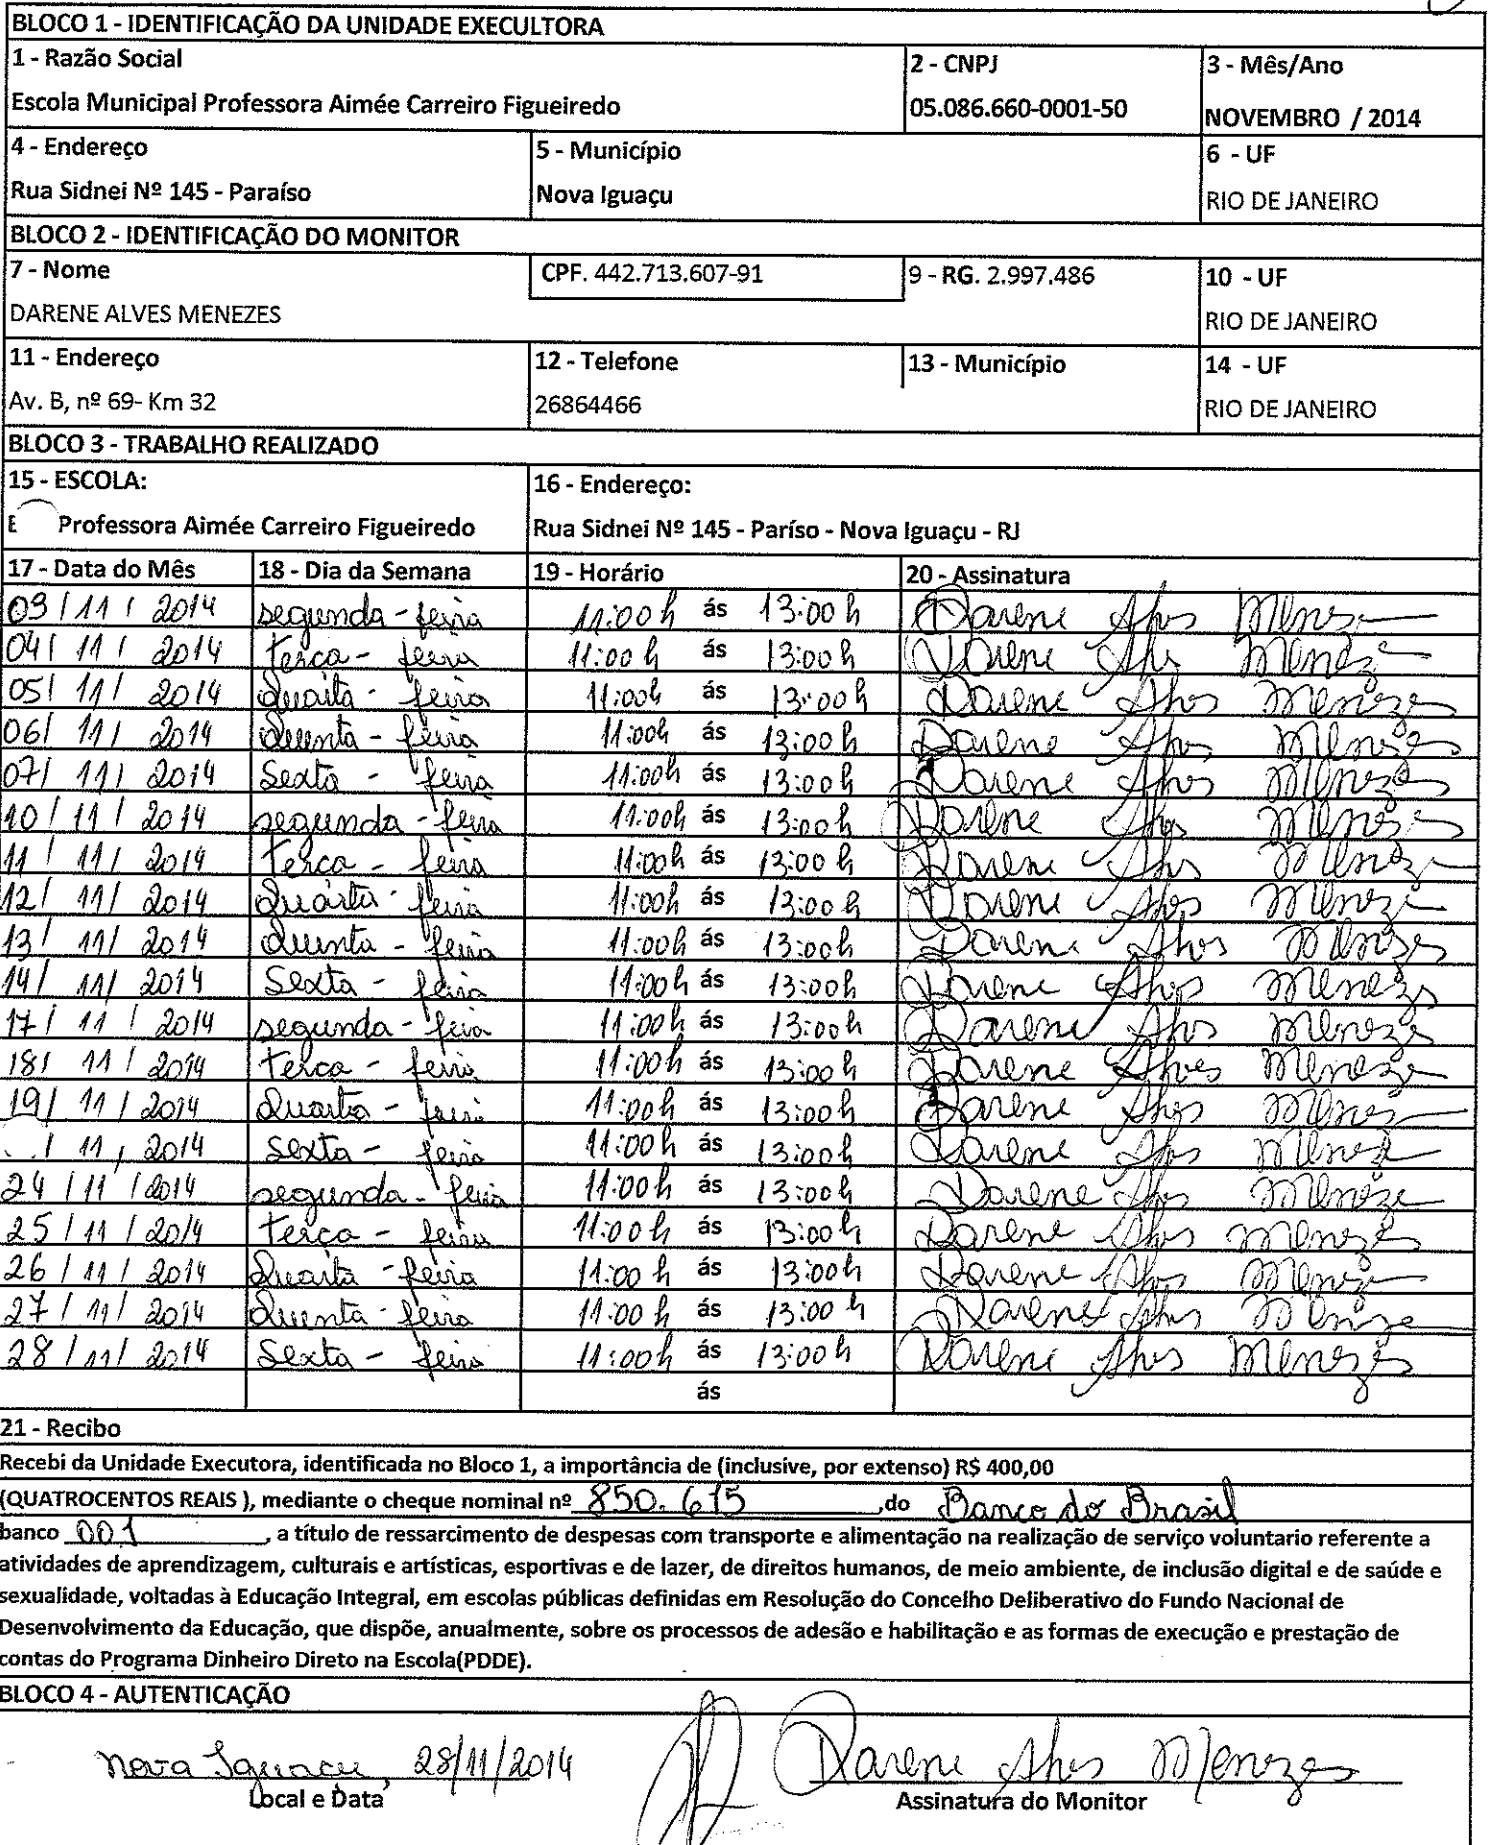 BLOCO 1 - IDENTIFICAÇÃO DA UNIDADE EXECULTORA
1 - Razão Social 2 - CNPJ 3 - Mês/Ano
Escola Municipal Professora Aimée Carreiro Figueiredo 05.086.660-0001-50 NOVEMBRO / 2014
4 - Endereço 5 - Município 6 - UF
Rua Sidnei Nº 145 - Paraíso Nova Iguaçu RIO DE JANEIRO
BLOCO 2 - IDENTIFICAÇÃO DO MONITOR
7 - Nome CPF. 442.713.607-91 9 - RG. 2.997.486 10 - UF
DARENE ALVES MENEZES RIO DE JANEIRO
11 - Endereço 12 - Telefone 13 - Município 14 - UF
Av. B, nº 69- Km 32 26864466 RIO DE JANEIRO
BLOCO 3 - TRABALHO REALIZADO
15 - ESCOLA: 16 - Endereço:
E Professora Aimée Carreiro Figueiredo Rua Sidnei Nº 145 - Paríso - Nova Iguaçu - RJ
17 - Data do Mês 18 - Dia da Semana 19 - Horário 20 - Assinatura
03 / 11 / 2014 segunda-feira 11:00 h ás 13:00 h Darene Alves Menezes
04 / 11 / 2014 terça-feira 11:00 h ás 13:00 h Darene Alves Menezes
05 / 11 / 2014 Quarta-feira 11:00h ás 13:00 h Darene Alves Menezes
06 / 11 / 2014 Quinta-feira 11:00h ás 13:00 h Darene Alves Menezes
07 / 11 / 2014 Sexta-feira 11:00h ás 13:00h Darene Alves Menezes
10 / 11 / 2014 segunda-feira 11:00h ás 13:00h Darene Alves Menezes
11 / 11 / 2014 terça-feira 11:00h ás 13:00 h Darene Alves Menezes
12 / 11 / 2014 Quarta-feira 11:00h ás 13:00 h Darene Alves Menezes
13 / 11 / 2014 Quinta-feira 11:00h ás 13:00h Darene Alves Menezes
14 / 11 / 2014 Sexta-feira 11:00h ás 13:00h Darene Alves Menezes
17 / 11 / 2014 segunda-feira 11:00h ás 13:00h Darene Alves Menezes
18 / 11 / 2014 terça-feira 11:00h ás 13:00h Darene Alves Menezes
19 / 11 / 2014 Quarta-feira 11:00h ás 13:00h Darene Alves Menezes
/ 11 / 2014 Sexta-feira 11:00h ás 13:00h Darene Alves Menezes
24 / 11 / 2014 segunda-feira 11:00h ás 13:00h Darene Alves Menezes
25 / 11 / 2014 terça-feira 11:00h ás 13:00h Darene Alves Menezes
26 / 11 / 2014 Quarta-feira 11:00 h ás 13:00h Darene Alves Menezes
27 / 11 / 2014 Quinta-feira 11:00 h ás 13:00 h Darene Alves Menezes
28 / 11 / 2014 Sexta-feira 11:00h ás 13:00h Darene Alves Menezes
ás
21 - Recibo
Recebi da Unidade Executora, identificada no Bloco 1, a importância de (inclusive, por extenso) R$ 400,00
(QUATROCENTOS REAIS ), mediante o cheque nominal nº 850.615 ,do Banco do Brasil
banco 001 , a título de ressarcimento de despesas com transporte e alimentação na realização de serviço voluntario referente a
atividades de aprendizagem, culturais e artísticas, esportivas e de lazer, de direitos humanos, de meio ambiente, de inclusão digital e de saúde e
sexualidade, voltadas à Educação Integral, em escolas públicas definidas em Resolução do Concelho Deliberativo do Fundo Nacional de
Desenvolvimento da Educação, que dispõe, anualmente, sobre os processos de adesão e habilitação e as formas de execução e prestação de
contas do Programa Dinheiro Direto na Escola(PDDE).
BLOCO 4 - AUTENTICAÇÃO
Nova Iguaçu, 28/11/2014 Darene Alves Menezes
Local e Data Assinatura do Monitor